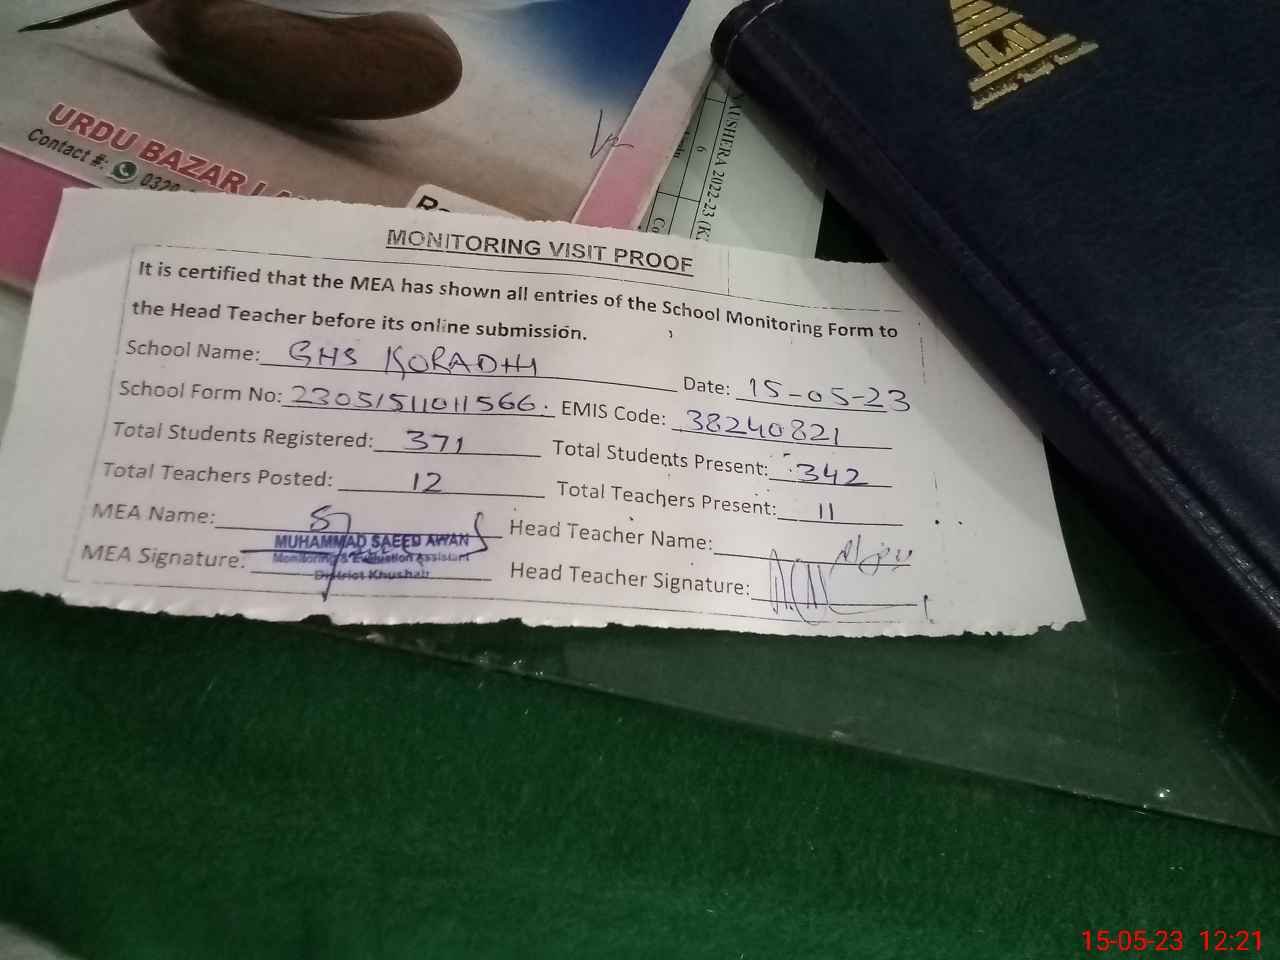 URDU BAZAR LA
Contact #: 0320
AUSHERA 2022-23 (K
6
Co
MONITORING VISIT PROOF
It is certified that the MEA has shown all entries of the School Monitoring Form to
the Head Teacher before its online submission.
School Name: GHS KORADHI Date: 15-05-23
School Form No: 23051511011566. EMIS Code: 38240821
Total Students Registered: 371 Total Students Present: 342
Total Teachers Posted: 12 Total Teachers Present: 11
MEA Name: Head Teacher Name:
MUHAMMAD SAEED AWAN
Monitoring & Evaluation Assistant
District Khushab
MEA Signature: Head Teacher Signature:
15-05-23 12:21